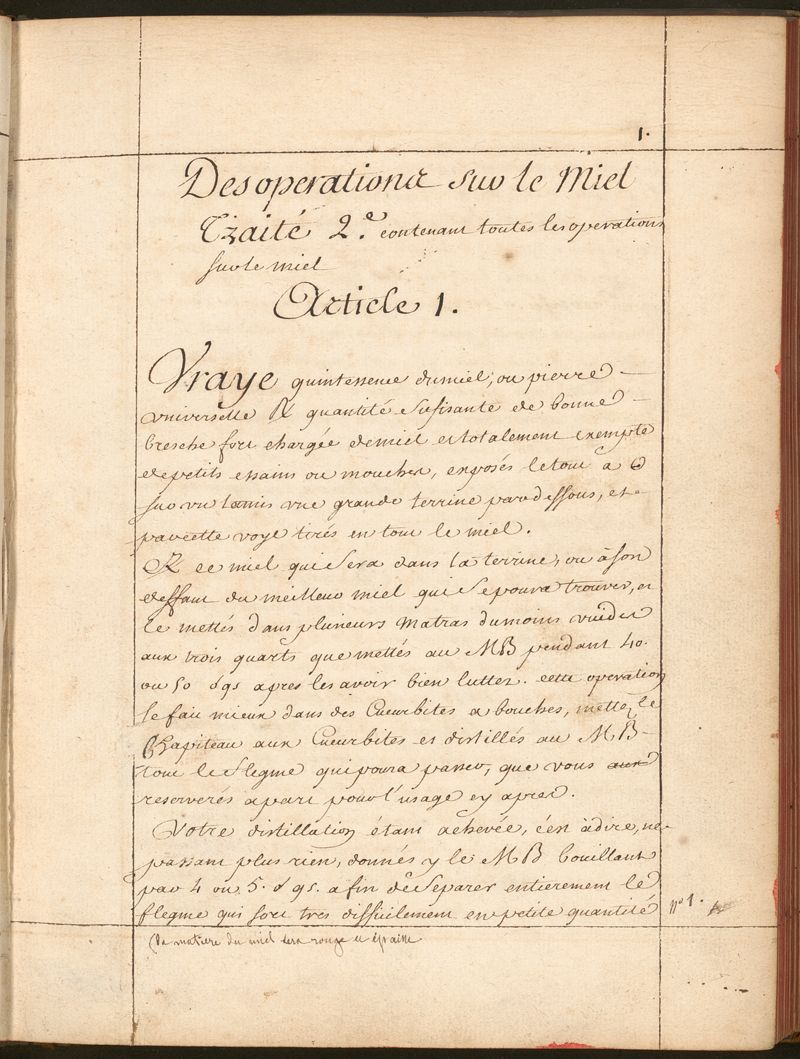 1.
Des operations sur le Miel
Traité 2.e contenant toutes les operations
sur le miel
Article 1.
Vraye quintessence du miel, ou pierre
vniverselle ℞ quantité sufisante de bonne
bresche fort chargée de miel et totalement exempte
de petits essains ou mouches, exposés le tout à
sur vn tamis vne grande terrine par dessous, et
par cette voye tirés en tout le miel.
℞ ce miel qui sera dans la terrine, ou à son
deffaut du meilleur miel qui se poura trouver, et
le mettés dans plusieurs matras du moins vuides
aux trois quarts que mettés au MB pendant 40.
ou 50 apres les avoir bien luttez. cette operation
se fait mieux dans des Cucurbites a bouches, mettez le
Chapiteau aux Cucurbites et distillés au MB
tout le flegme qui poura passer, que vous
reserverés apart pour l'usage cy apres.
Votre distillation étant achevée, c'est à dire, ne
passant plus rien, donnés y le MB bouillant
par 4 ou 5. afin de separer entierement le
flegme qui sort tres dificilement en petite quantité
n° 1.
la matiere du miel sera rouge et épaisse